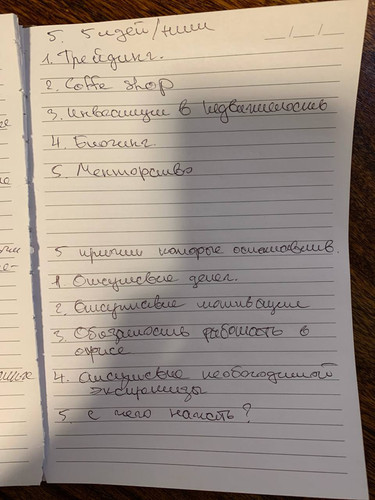 5. 5 идей/ниш
__/__/__
1. Трейдинг.
2. Coffe Shop
3. Инвестиции в недвижимость
4. Блогинг
5. Менторство
5 причин которые останавлив.
1. Отсутствие денег.
2. Отсутствие мотивации
3. Обязанность работать в
офисе
4. отсутствие необходимой
экспертизы
5. с чего начать?